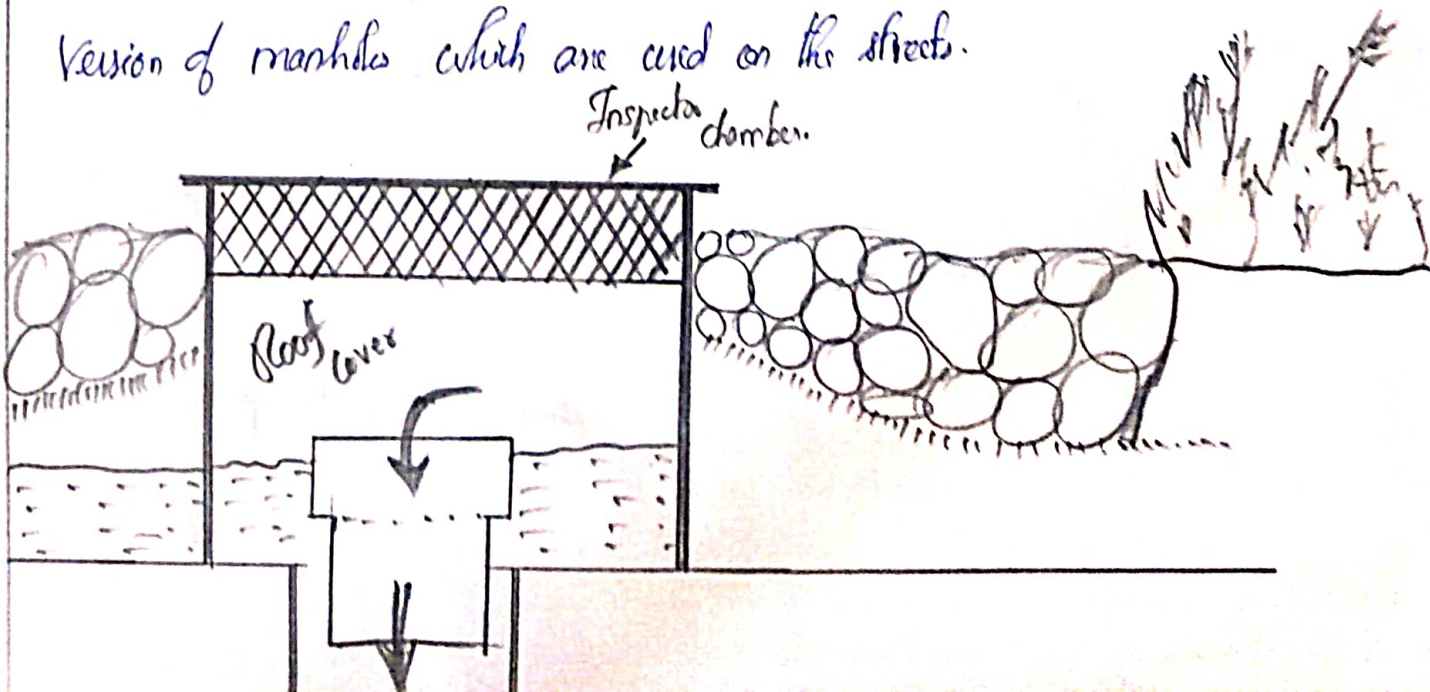 Version of manholes which are used on the streets.
Inspector
chamber.
Roof
cover